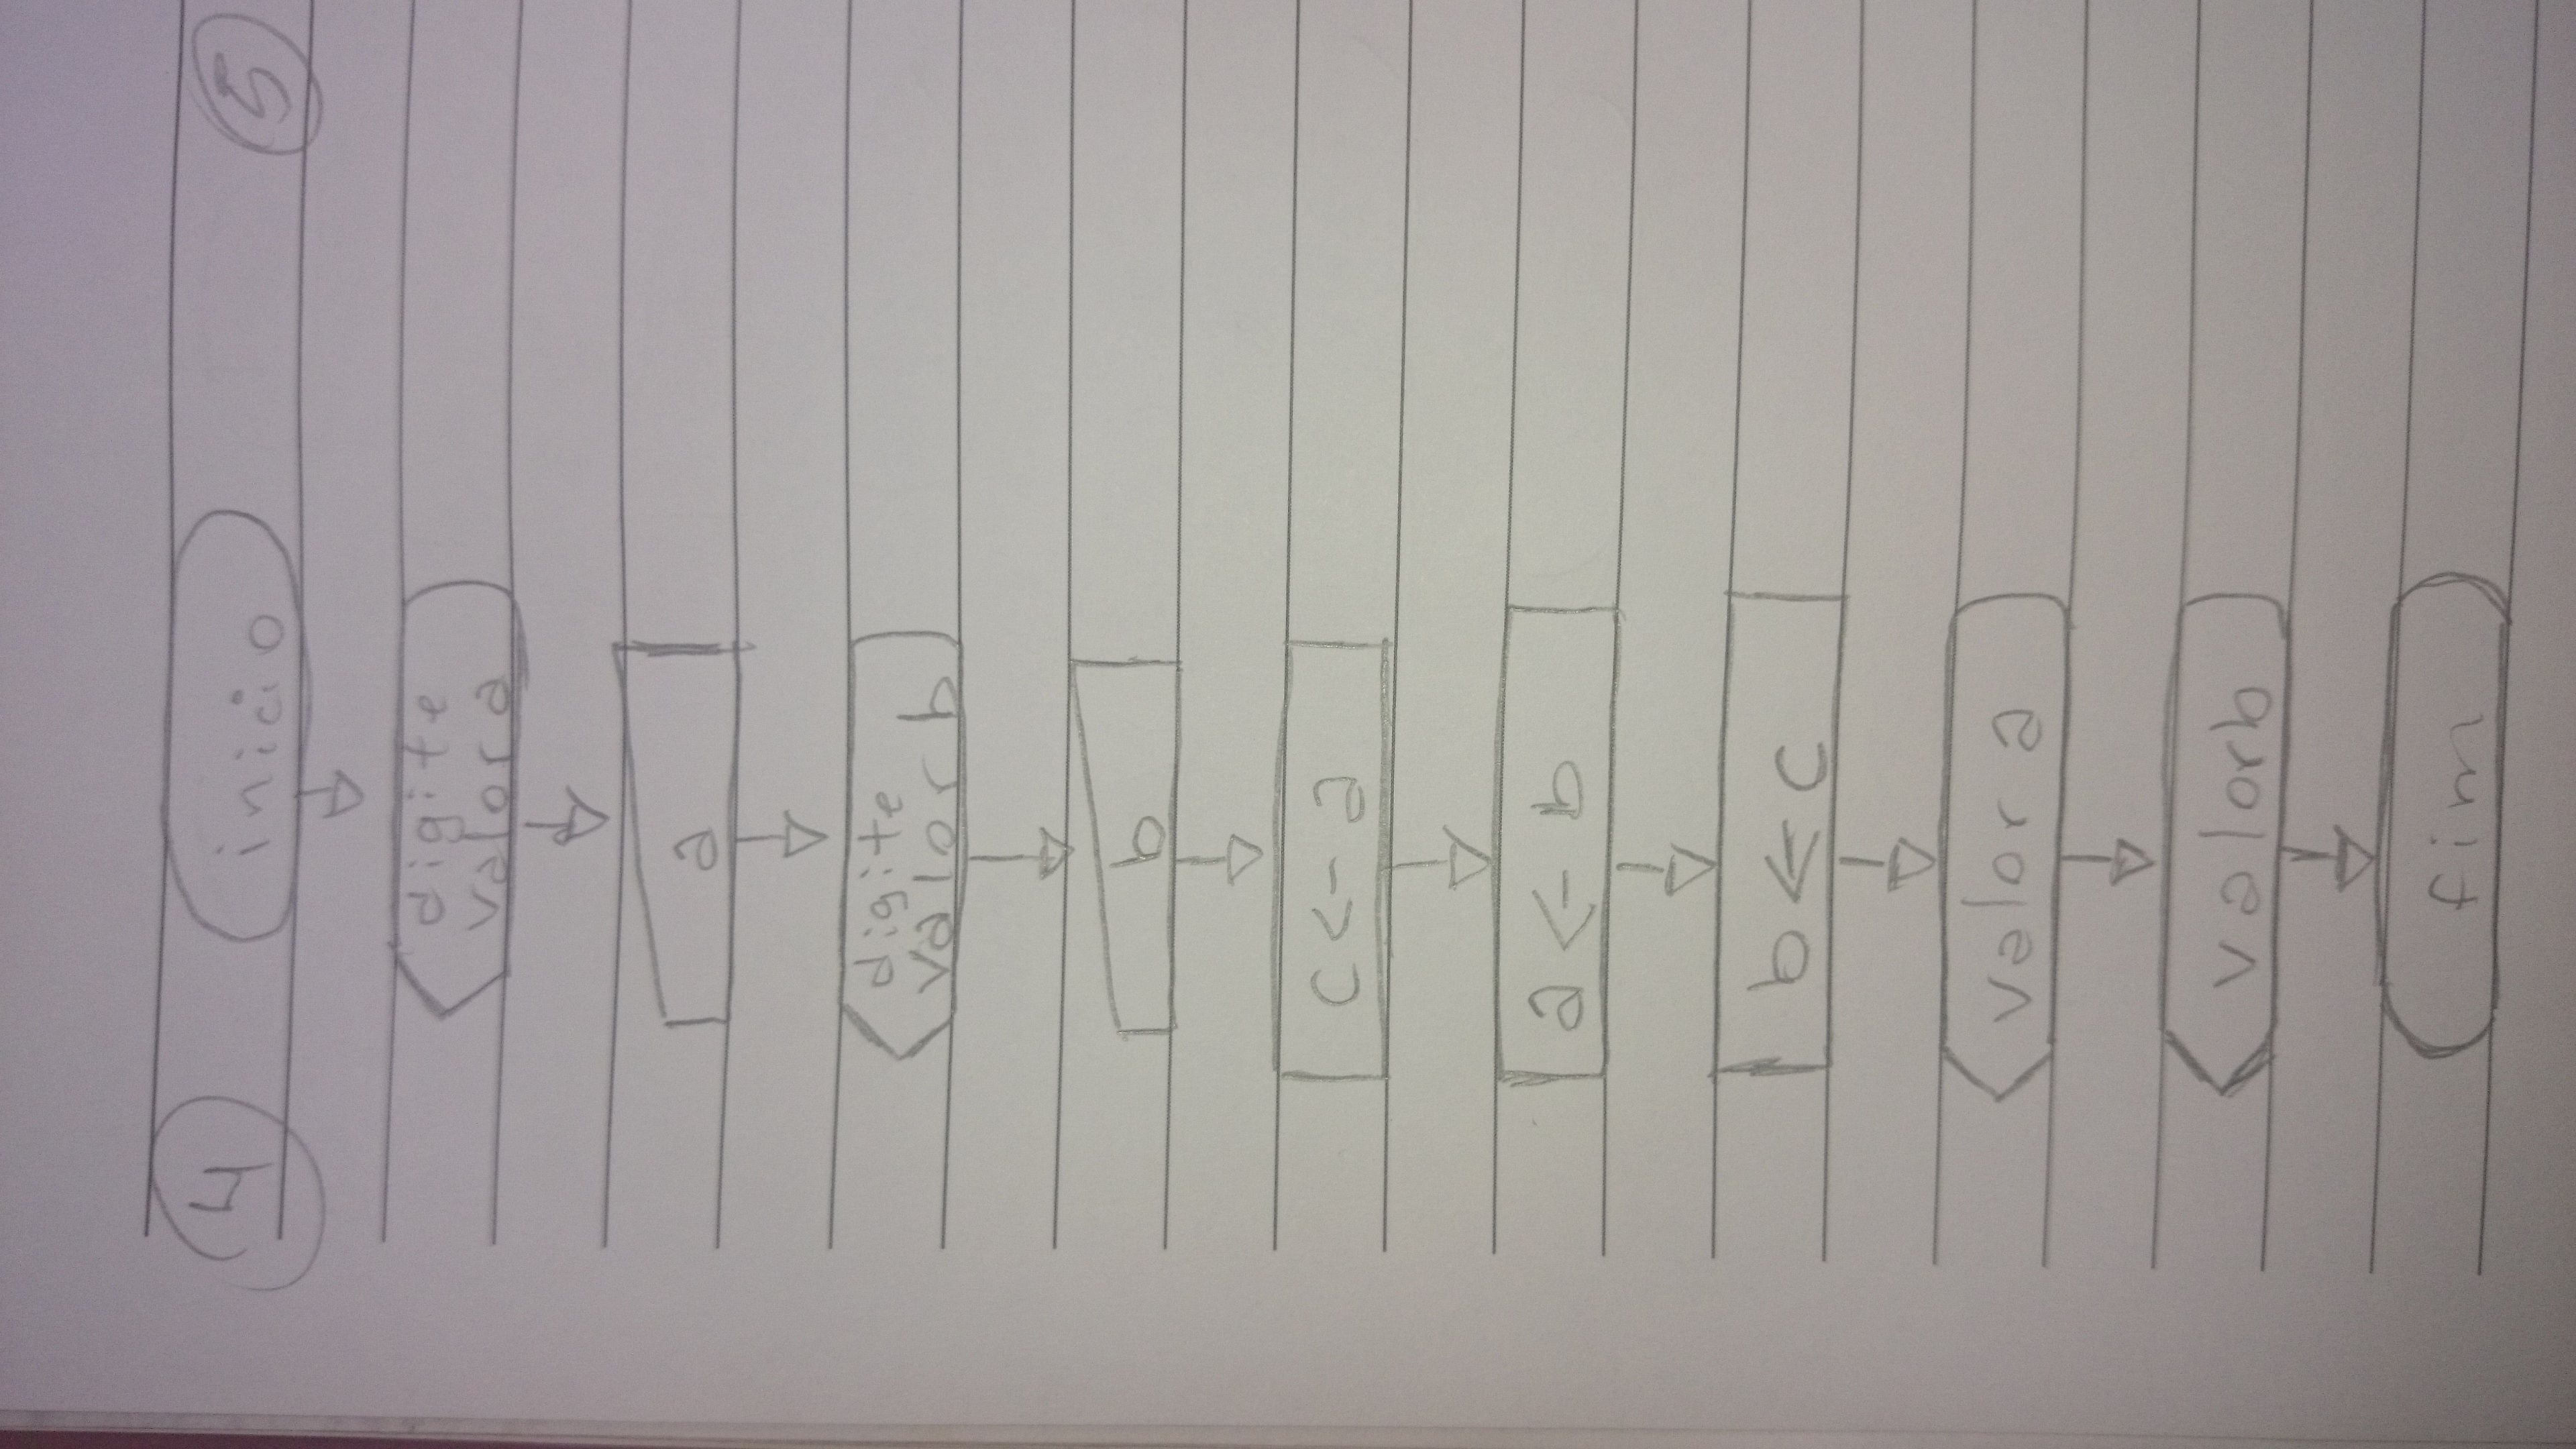 4
inicio
5
digite
valor a
a
digite
valor b
b
c <- a
a <- b
b <- c
valor a
valor b
fin